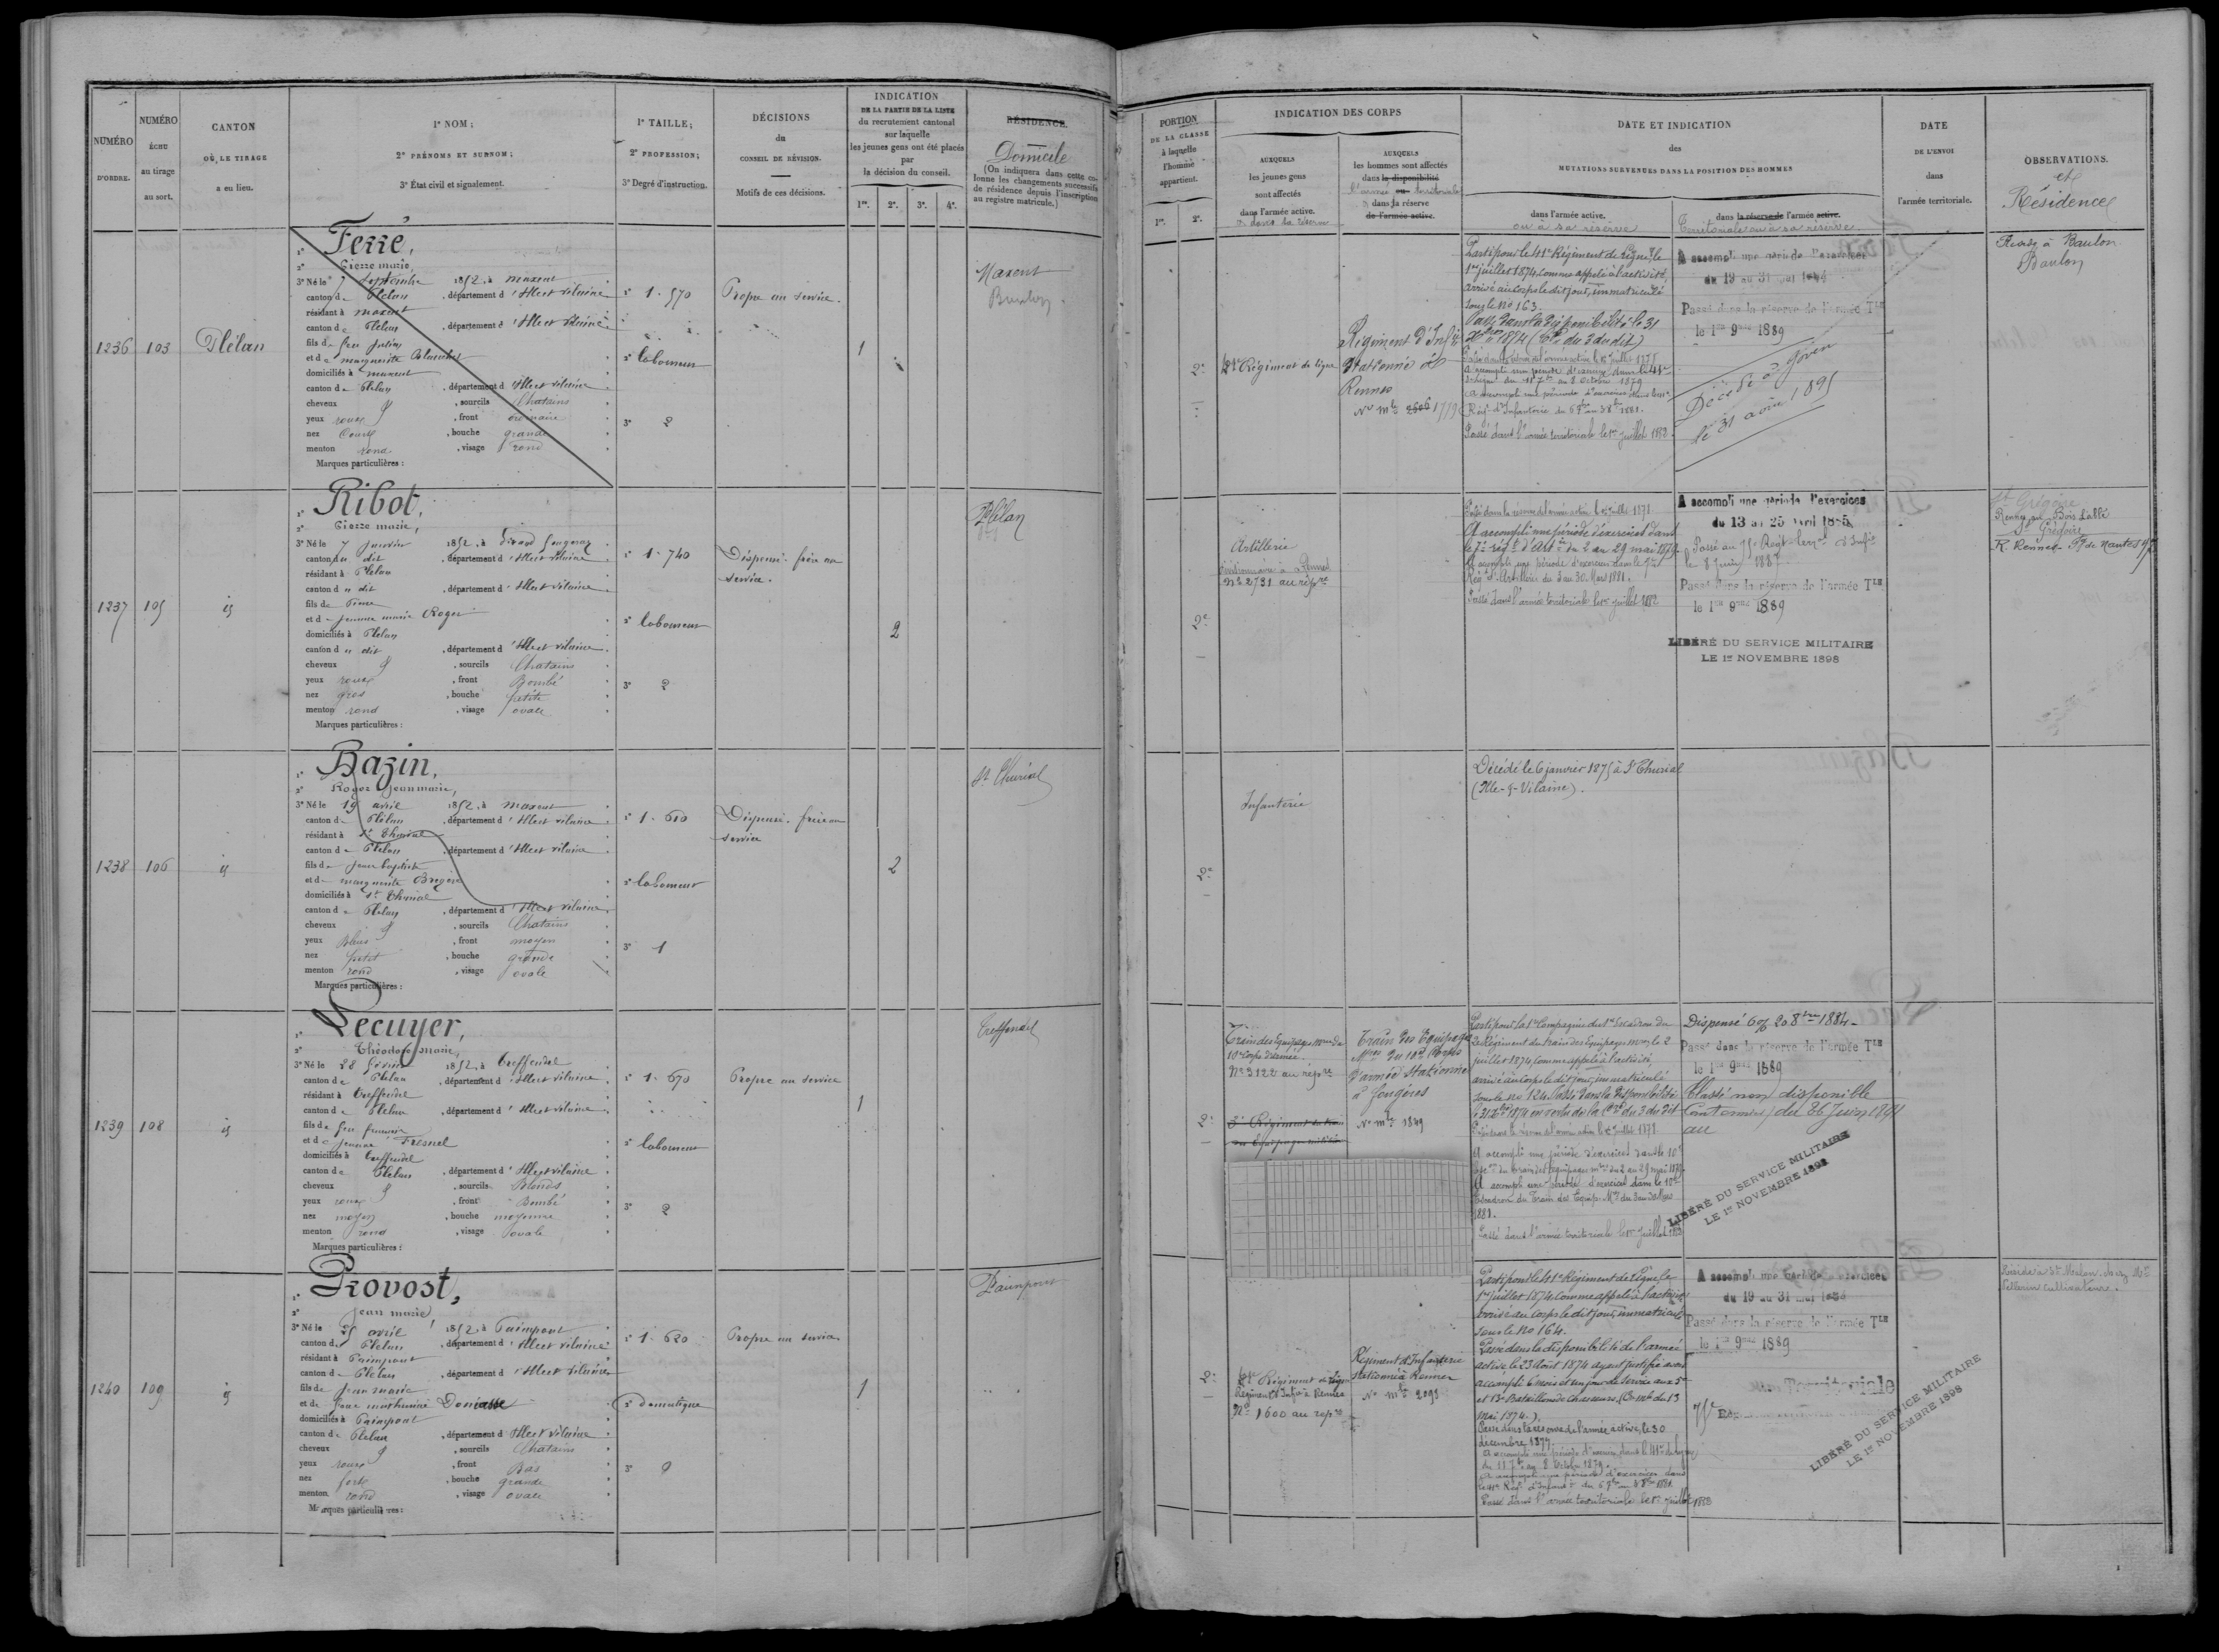 NUMÉRO
D'ORDRE.
NUMÉRO
ÉCHU
au tirage
au sort.
CANTON
OÙ LE TIRAGE
a eu lieu.
1º NOM;
2º PRÉNOMS ET SURNOM;
3º État civil et signalement.
1º TAILLE;
2º PROFESSION;
3º Degré d'instruction.
DÉCISIONS
du
CONSEIL DE RÉVISION.
Motifs de ces décisions.
INDICATION
DE LA PARTIE DE LA LISTE
du recrutement cantonal
sur laquelle
les jeunes gens ont été placés
par
la décision du conseil.
1re. 2e. 3e. 4e.
RÉSIDENCE.
Domicile
(On indiquera dans cette co-
lonne les changements successifs
de résidence depuis l'inscription
au registre matricule.)
1236 103 Plélan
1º Ferré,
2º Pierre marie,
3º Né le 7 septembre 1852, à maxent
canton de Plelan, département d'Ille et vilaine
résidant à maxent
canton de Plelan, département d'Ille et vilaine
fils de feu julien
et de marguerite
domiciliés à maxent
canton de Plelan, département d'Ille et vilaine
cheveux, sourcils Chatains
yeux roux, front ordinaire
nez Court, bouche grande
menton rond, visage rond
Marques particulières:
1º 1.570
2º laboureur
3º 2
Propre au service.
1
Maxent
Baulon.
1237 105 id
1º Ribot,
2º Pierre marie,
3º Né le 7 janvier 1852, à
canton du dit, département d'Ille et vilaine
résidant à Plelan
canton du dit, département d'Ille et vilaine
fils de Pierre
et de jeanne marie Roger
domiciliés à Plelan
canton du dit, département d'Ille et vilaine
cheveux, sourcils Chatains
yeux roux, front Bombé
nez gros, bouche petite
menton rond, visage ovale
Marques particulières:
1º 1.740
2º laboureur
3º 2
Dispensé. frère au
service.
2
Plélan
1238 106 id
1º Bazin,
2º Roger jean marie,
3º Né le 19 avril 1852, à maxent
canton de Plélan, département d'Ille et vilaine
résidant à St Thurial
canton de Plelan, département d'Ille et vilaine
fils de jean baptiste
et de marguerite
domiciliés à St Thurial
canton de Plelan, département d'Ille et vilaine
cheveux, sourcils Chatains
yeux Bleus, front moyen
nez petit, bouche grande
menton rond, visage ovale
Marques particulières:
1º 1.610
2º laboureur
3º 1
Dispensé. frère au
service
2
St Thurial
1239 108 id
1º Lecuyer,
2º Théodore marie,
3º Né le 28 février 1852, à Treffendel
canton de Plelan, département d'Ille et vilaine
résidant à Treffendel
canton de Plelan, département d'Ille et vilaine
fils de feu françois
et de jeanne Fresnel
domiciliés à Treffendel
canton de Plelan, département d'Ille et vilaine
cheveux, sourcils Blonds
yeux roux, front Bombé
nez moyen, bouche moyenne
menton rond, visage ovale
Marques particulières:
1º 1.670
2º laboureur
3º 2
Propre au service
1
Treffendel
1240 109 id
1º Provost,
2º jean marie,
3º Né le 25 avril 1852, à Paimpont
canton de Plelan, département d'Ille et vilaine
résidant à Paimpont
canton de Plelan, département d'Ille et vilaine
fils de jean marie
et de
domiciliés à Paimpont
canton de Plelan, département d'Ille et vilaine
cheveux, sourcils Chatains
yeux roux, front Bas
nez fort, bouche grande
menton rond, visage ovale
Marques particulières:
1º 1.620
2º Domestique
3º 0
Propre au service
1
Paimpont
PORTION
DE LA CLASSE
à laquelle
l'homme
appartient.
1re. 2e.
INDICATION DES CORPS
AUXQUELS
les jeunes gens
sont affectés
dans l'armée active.
ou dans la réserve
AUXQUELS
les hommes sont affectés
dans la disponibilité
l'armée ou territoriale
ou dans sa réserve
de l'armée active.
DATE ET INDICATION
des
MUTATIONS SURVENUES DANS LA POSITION DES HOMMES
dans l'armée active.
ou à sa réserve
dans la réserve de l'armée active.
Territoriale ou à sa réserve
DATE
DE L'ENVOI
dans
l'armée territoriale.
OBSERVATIONS.
et
Résidences
2e
41e Régiment de ligne
Régiment d'Infie
Stationné à
Rennes
No mle 2606 1779
Parti pour le 41e Régiment de Ligne, le
1er juillet 1874, comme appelé à l'activité,
arrivé au corps le dit jour, immatriculé
sous le No 163.
Passé dans la disponibilité le 31
Xbre 1874 (Cre du 3 du dit)
Passé dans la réserve de l'armée active le 1er juillet 1877
A accompli une période d'exercice dans le 41e
de ligne du 11 7bre au 8 Octobre 1879
A accompli une période d'exercices dans le 41e
Passé dans l'armée territoriale le 1er juillet 1882
A accompli une période d'exercices
du 19 au 31 mai 1884
Passé dans la réserve de l'armée Tle
le 1er 9bre 1889
Décédé à Goven
le 31 août 1895
Baulon
2e
Artillerie
divisionnaire à Rennes
No 2731 au répre
Passé dans la réserve de l'armée active le 1er juillet 1877
A accompli une période d'exercices dans
le 7e régt d'Arte du 2 au 29 mai 1879
A accompli une période d'exercices dans le 7e
Rég. d'Artillerie du 3 au 30 Mars 1881.
Passé dans l'armée territoriale le 1er juillet 1882
A accompli une période d'exercices
du 13 au 25 Avril 1885
Passé au 75e Régt terral d'Infie
le 8 Juin 1887
Passé dans la réserve de l'armée Tle
le 1er 9bre 1889
LIBÉRÉ DU SERVICE MILITAIRE
LE 1er NOVEMBRE 1898
St Grégoire
St Grégoire
R. Rennes
2e
Infanterie
Décédé le 6 janvier 1875 à St Thurial
(Ille-&-Vilaine).
2e
Train des Equipages mres du
10e Corps d'armée.
No 3122 au répre
Train des Equipages
Mres du 10e Corps
d'armée Stationné
à fougères
No mle 1849
Parti pour la 1e Compagnie du 1er Escadron du
2e Régiment du train des Equipages mres le 2
juillet 1874, comme appelé à l'activité,
arrivé au corps le dit jour, immatriculé
sous le no 124. Passé dans la disponibilité
le 31 Xbre 1874 en vertu de la Cre du 3 du dit
Passé dans la réserve de l'armée active le 1er juillet 1877
A accompli une période d'exercices dans le 10e
Escon du train des équipages mres du 2 au 29 mai 1879
A accompli une période d'exercices dans le 10e
Escadron du Train des Equip. Mres du 3 au 30 Mars
1881.
Passé dans l'armée territoriale le 1er juillet 1882
Dispensé 20 8bre 1884.
Passé dans la réserve de l'armée Tle
le 1er 9bre 1889
Classé non disponible
Cantonnier du 26 Juin 1891
au
LIBÉRÉ DU SERVICE MILITAIRE
LE 1er NOVEMBRE 1898
2e
41e Régiment de ligne
Régiment d'Infie à Rennes
No 1600 au répre
Régiment d'Infanterie
Stationné à Rennes
No mle 2093
Parti pour le 41e Régiment de Ligne le
1er juillet 1874, comme appelé à l'activité
arrivé au corps le dit jour, immatriculé
sous le No 164.
Passé dans la disponibilité de l'armée
active le 23 Août 1874 ayant justifié avoir
accompli 6 mois et un jour de service aux 5e
et 13e Bataillons de chasseurs, (Cre mle du 13
Mai 1874.)
Passé dans la réserve de l'armée active, le 30
décembre 1877
A accompli une période d'exercice dans le 41e de ligne
du 11 7bre au 8 Octobre 1879.
A accompli une période d'exercices dans
le 41e Régt d'Infantie
Passé dans l'armée territoriale le 1er juillet 1882
A accompli une période d'exercices
du 19 au 31 mai 1884
Passé dans la réserve de l'armée Tle
le 1er 9bre 1889
Territoriale
75e
LIBÉRÉ DU SERVICE MILITAIRE
LE 1er NOVEMBRE 1898
Réside à St Méalon chez Mr
Pellerin cultivateur.